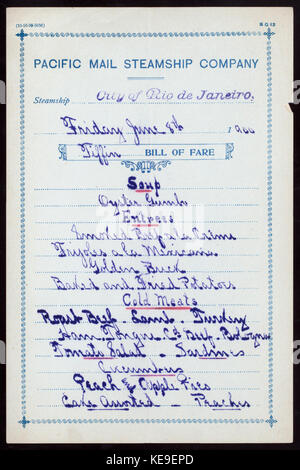 B G 12
PACIFIC MAIL STEAMSHIP COMPANY
Steamship City of Rio de Janeiro.
Friday June 8th 1900
Tiffin BILL OF FARE
Soup
Oyster Gumbo
Entrees
Smoked Beef a la Creme
Frijoles a la Mexicaine
Golden Buck
Baked and Fried Potatoes
Cold Meats
Roast Beef - Lamb - Turkey
Ham Tongue Cd Beef
Tomato Salad - Sardines
Cucumbers
Peach & Apple Pies
Cake Assorted - Peaches
alamy
Image ID: KE9EPD
www.alamy.com